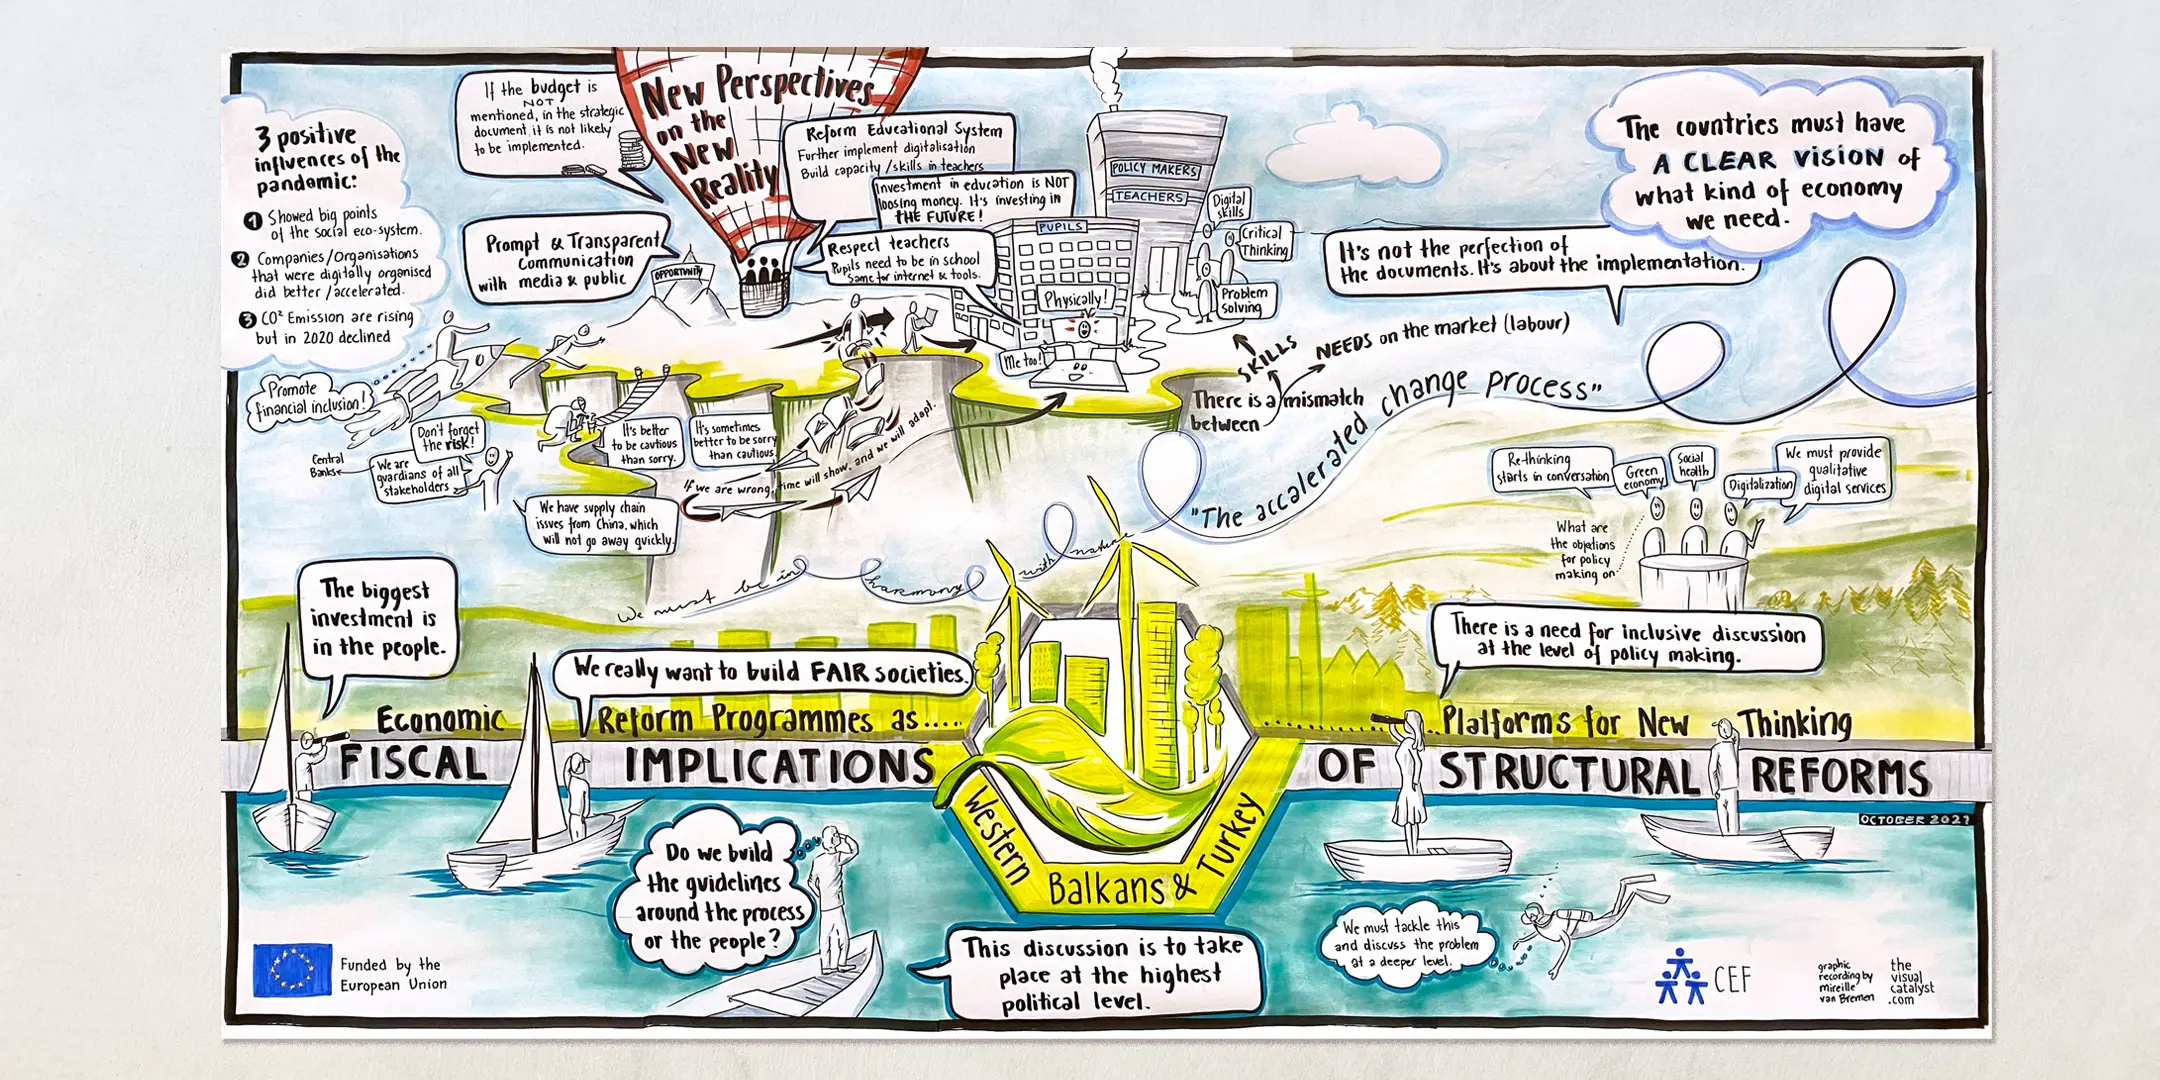 3 positive
influences of the
pandemic:
1 Showed big points
of the social eco-system.
2 Companies/Organisations
that were digitally organised
did better/accelerated.
3 CO² Emission are rising
but in 2020 declined
If the budget is
NOT
mentioned, in the strategic
document, it is not likely
to be implemented.
New Perspectives
on the
New
Reality
Prompt & Transparent
Communication
with media & public
OPPORTUNITY
Reform Educational System
Further implement digitalisation
Build capacity/skills in teachers
Investment in education is NOT
loosing money. It's investing in
THE FUTURE!
Respect teachers
Pupils need to be in school
Same for internet & tools.
POLICY MAKERS
TEACHERS
PUPILS
Digital
skills
Critical
Thinking
Problem
Solving
Physically!
Me too!
The countries must have
A CLEAR VISION of
what kind of economy
we need.
It's not the perfection of
the documents. It's about the implementation.
SKILLS
NEEDS on the market (labour)
There is a mismatch
between
"The accalerated change process"
Promote
financial inclusion!
Don't forget
the risk!
Central
Banks
We are
guardians of all
stakeholders
It's better
to be cautious
than sorry.
It's sometimes
better to be sorry
than cautious.
If we are wrong, time will show, and we will adapt.
We have supply chain
issues from China, which
will not go away quickly.
We must be in harmony with nature
Re-thinking
starts in conversation
Green
economy
Social
health
Digitalization
We must provide
qualitative
digital services
What are
the objations
for policy
making on
The biggest
investment is
in the people.
We really want to build FAIR societies.
There is a need for inclusive discussion
at the level of policy making.
Economic Reform Programmes as..... Platforms for New Thinking
FISCAL IMPLICATIONS OF STRUCTURAL REFORMS
OCTOBER 2021
Western Balkans & Turkey
Do we build
the guidelines
around the process
or the people?
This discussion is to take
place at the highest
political level.
We must tackle this
and discuss the problem
at a deeper level.
Funded by the
European Union
CEF
graphic
recording by
mireille
van Bremen
the
visual
catalyst
.com